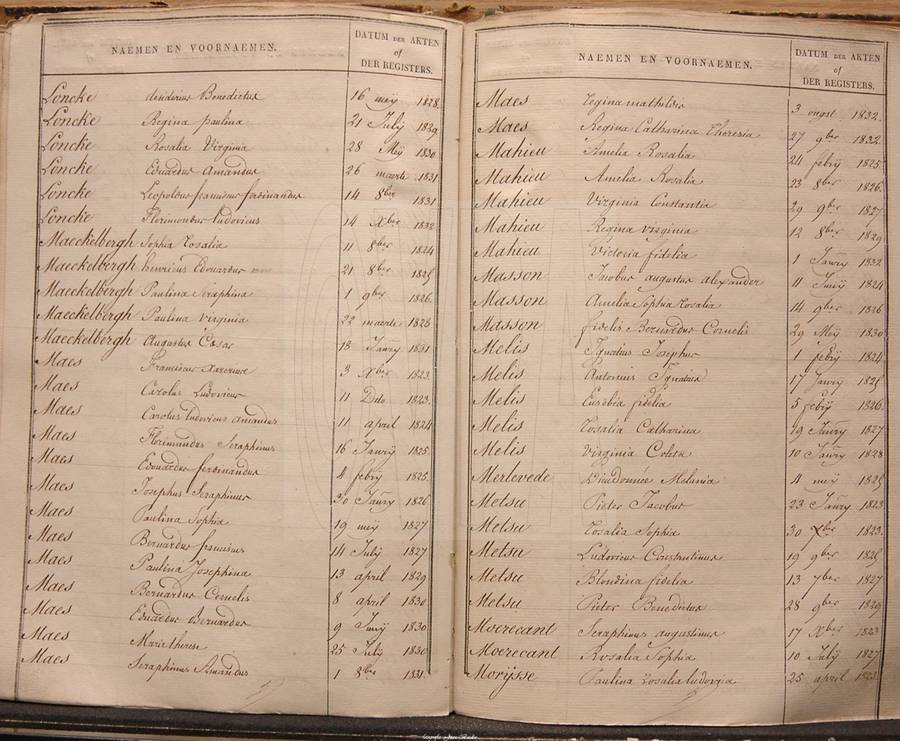 NAEMEN EN VOORNAEMEN.
DATUM DER AKTEN
of
DER REGISTERS.
Loncke Benedictus 16 meij 1828.
Loncke Regina paulina 21 Julij 1829
Loncke Rosalia Virginia 28 Meij 1830
Loncke Eduardus Amandus 26 maerte 1831
Loncke Leopoldus franciscus ferdinandus 14 8ber 1831
Loncke Florimondus Ludovicus 14 Xber 1832
Maeckelbergh Sophia Rosalia 11 8ber 1824
Maeckelbergh henricus Edouardus 21 8ber 1825
Maeckelbergh Paulina Seraphina 1 9ber 1826
Maeckelbergh Paulina Virginia 22 maerte 1828
Maeckelbergh Augustus Cesar 13 Janry 1831
Maes Franciscus 3 Xber 1823
Maes Carolus Ludovicus 11 Do 1823
Maes Carolus ludovicus amandus 11 april 1824
Maes Florimundus Seraphinus 16 Janry 1825
Maes Eduardus ferdinandus 4 febrij 1825
Maes Josephus Seraphinus 30 Janry 1826
Maes Paulina Sophia 19 meij 1827
Maes Bernardus franciscus 14 July 1827
Maes Paulina Josephina 13 april 1829
Maes Bernardus Cornelis 8 april 1830
Maes Eduardus Bernardus 9 Junij 1830
Maes Marie therese 25 July 1830
Maes Seraphinus Amandus 1 8ber 1831
NAEMEN EN VOORNAEMEN.
DATUM DER AKTEN
of
DER REGISTERS.
Maes Regina mathilde 3 ougst 1832
Maes Regina Catharina Theresia 27 9ber 1832
Mahieu Amelia Rosalia 24 febrij 1825
Mahieu Amelia Rosalia 23 8ber 1826
Mahieu Virginia Constantia 29 9ber 1827
Mahieu Regina virginia 12 8ber 1829
Mahieu Victoria fidelia 1 Janry 1832
Masson Jacobus augustus alexander 11 Junij 1824
Masson Amelia Sophia Rosalia 14 9ber 1826
Masson fidelis Bernardus Cornelis 29 Meij 1830
Melis Ignatius Josephus 1 febrij 1824
Melis Antonius Ignatius 17 Janry 1825
Melis Eusebia fidelia 5 febrij 1826
Melis Rosalia Catharina 19 Janry 1827
Melis Virginia Coleta 10 Janry 1828
Merlevede Dieudonnée Melania 4 meij 1825
Metsu Pieter Jacobus 23 Janry 1823
Metsu Rosalia Sophia 30 Xber 1823
Metsu Ludovicus Constantinus 19 9ber 1825
Metsu Blondina fidelia 13 7ber 1827
Metsu Pieter Benedictus 28 9ber 1829
Moerecant Seraphinus augustinus 17 Xber 1823
Moerecant Rosalia Sophia 10 July 1827
Morijsse Paulina Rosalia ludovica 25 april 1823